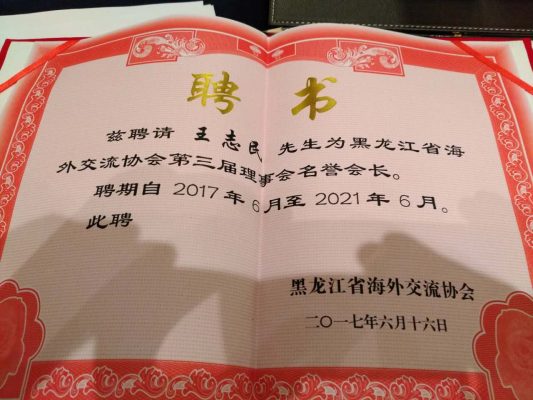 聘书
兹聘请 王志民 先生为黑龙江省海
外交流协会第三届理事会名誉会长。
聘期自 2017 年 6 月至 2021 年 6 月。
此聘
黑龙江省海外交流协会
二〇一七年六月十六日